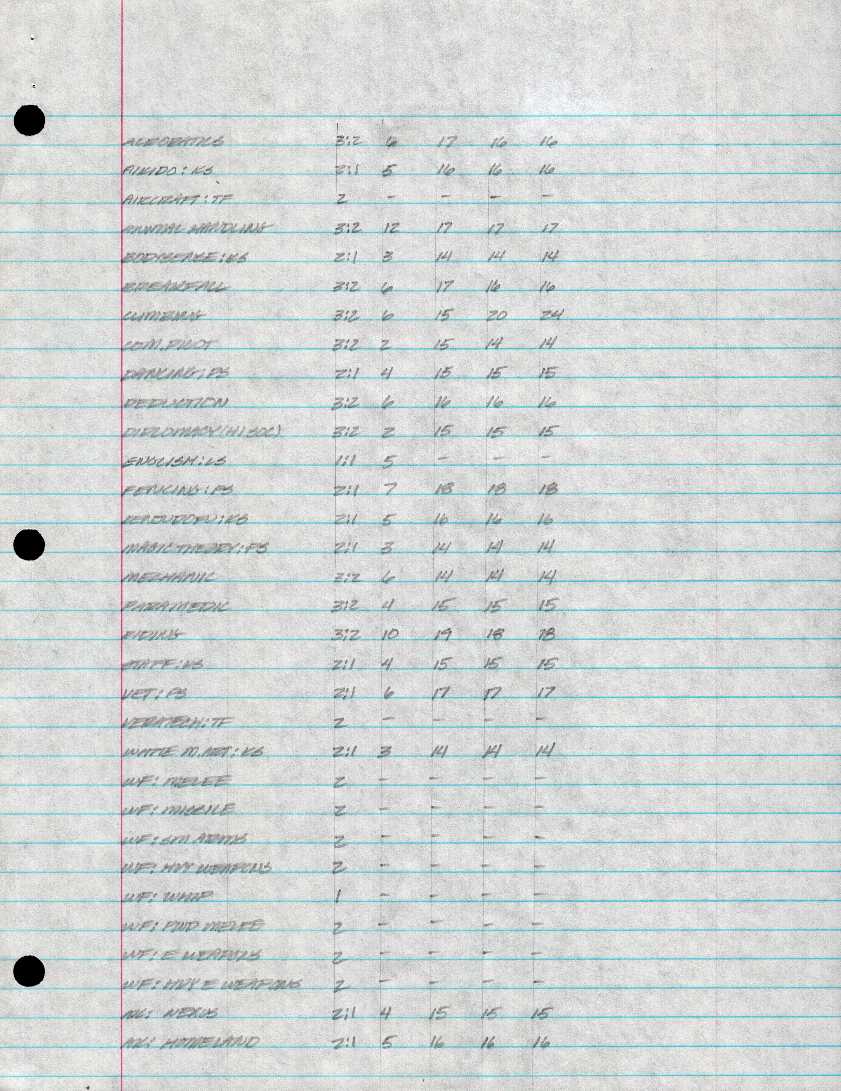 ACROBATICS 3:2 6 17 16 16
AIKIDO: KS 2:1 5 16 16 16
AIRCRAFT: TF 2 - - - -
ANIMAL HANDLING 3:2 12 17 17 17
2:1 3 14 14 14
BREAKFALL 3:2 6 17 16 16
CLIMBING 3:2 6 15 20 24
COM. PILOT 3:2 2 15 14 14
DANCING: PS 2:1 4 15 15 15
DEDUCTION 3:2 6 16 16 16
DIPLOMACY (HI SOC) 3:2 2 15 15 15
ENGLISH: LS 1:1 5 - - -
FENCING: PS 2:1 7 18 18 18
2:1 5 16 16 16
MAGIC THEORY: PS 2:1 3 14 14 14
MECHANIC 3:2 6 14 14 14
PARAMEDIC 3:2 4 15 15 15
RIDING 3:2 10 19 18 18
STAFF: KS 2:1 4 15 15 15
VET: PS 2:1 6 17 17 17
VERATECH: TF 2 - - - -
M. ART: KS 2:1 3 14 14 14
WF: MELEE 2 - - - -
WF: MISSILE 2 - - - -
WF: SM ARMS 2 - - - -
WF: HVY WEAPONS 2 - - - -
WF: WHIP 1 - - - -
WF: PWD MELEE 2 - - - -
WF: E WEAPONS 2 - - - -
WF: HVY E WEAPONS 2 - - - -
NEXUS 2:1 4 15 15 15
HOMELAND 2:1 5 16 16 16